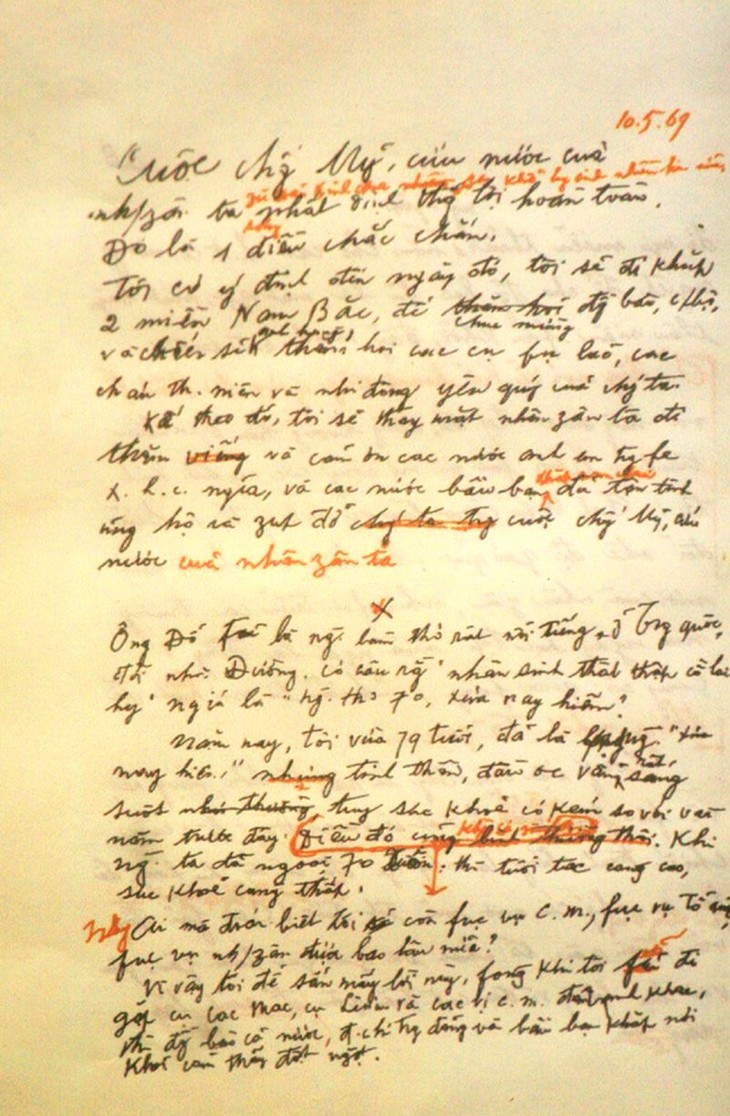 10.5.69
Cuộc chố́g Mỹ, cứu nước của
dù phải kinh qua nhiều hy sinh nhiều hơn nữa
nh/zân ta nhất định thắ́g lợi hoàn toàn.
Đó là 1 điều chắc chắn.
Tôi có ý định đến ngày đó, tôi sẽ đi khắp
2 miền Nam Bắc, để thăm hỏi đ̀g bào, c/bộ,
chúc mừng
và chiến sĩ anh hùng, thăm hỏi các cụ fụ lão, các
cháu th. niên và nhi đồng yêu quý của chú́g ta.
Kế theo đó, tôi sẽ thay mặt nhân zân ta đi
thăm viếng và cám ơn các nước anh em tr̀g fe
x. h. c. nghĩa, và các nước bầu bạn đã tận tình
ủng hộ và zúp đỡ chú́g ta trg cuộc chố́g Mỹ, cứu
nước của nhân zân ta
X
Ông Đỗ Fủ là ng. làm thơ rất nổi tiếng ở Tr̀g quốc,
đời nhà Đường. Có câu rằ̀g "nhân sinh thất thập cổ lai
hy" nghĩa là "ng. thọ 70, xưa nay hiếm".
Năm nay, tôi vừa 79 tuổi, đã là hạ̣ng "xưa
nay hiếm" nhưng tinh thần, đầu óc vẫn rất sáng
suốt như thường, tuy sức khoẻ có kém so với vài
năm trước đây. Điều đó cũng bình thường thôi. Khi
ng. ta đã ngoài 70 xuân, thì tuổi tác càng cao,
sức khoẻ càng thấp.
Nhưng Ai mà đoán biết tôi sẽ còn fục vụ c.m., fục vụ Tổ quốc,
fục vụ nh/zân được bao lâu nữa?
Vì vậy tôi để sẵn mấy lời này, fòng khi tôi fải đi
gặp cụ Các Mác, cụ Lênin và các vị c.m. đàn anh khác,
thì đ̀g bào cả nước, đ.chí trg đảng và bầu bạn khắp nơi
khỏi cảm thấy đột ngột.